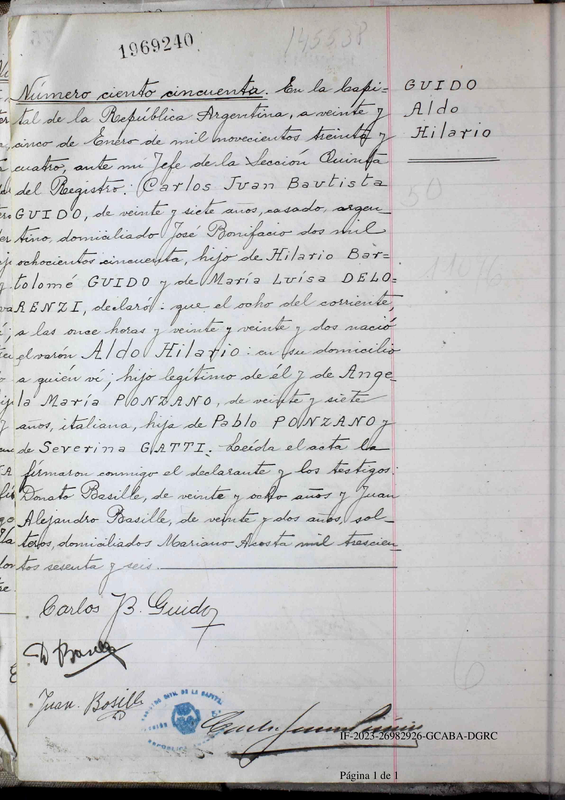 1969240
145538
Número ciento cincuenta. En la Capi-
tal de la República Argentina, a veinte y
cinco de Enero de mil novecientos treinta y
cuatro, ante mi Jefe de la Seccion Quinta
del Registro: Carlos Juan Bautista
GUIDO, de veinte y siete años, casado, argen-
tino, domiciliado José Bonifacio dos mil
ochocientos cincuenta, hijo de Hilario Bar-
tolomé GUIDO y de María Luisa DELO-
RENZI, declaró: que el ocho del corriente,
a las once horas y veinte y veinte y dos nació
el varón Aldo Hilario: en su domicilio
a quién ví; hijo legítimo de él y de Ange-
la María PONZANO, de veinte y siete
años, italiana, hija de Pablo PONZANO y
de Severina GATTI. Leída el acta la
firmaron conmigo el declarante y los testigos:
Donato Basille, de veinte y ocho años y Juan
Alejandro Basille, de veinte y dos años, sol-
teros, domiciliados Mariano Acosta mil trescien-
tos sesenta y seis.
GUIDO
Aldo
Hilario
50
Carlos J B. Guido
D Basille
Juan Bosille
REGISTRO CIVIL DE LA CAPITAL
IF-2023-26982926-GCABA-DGRC
6
Página 1 de 1